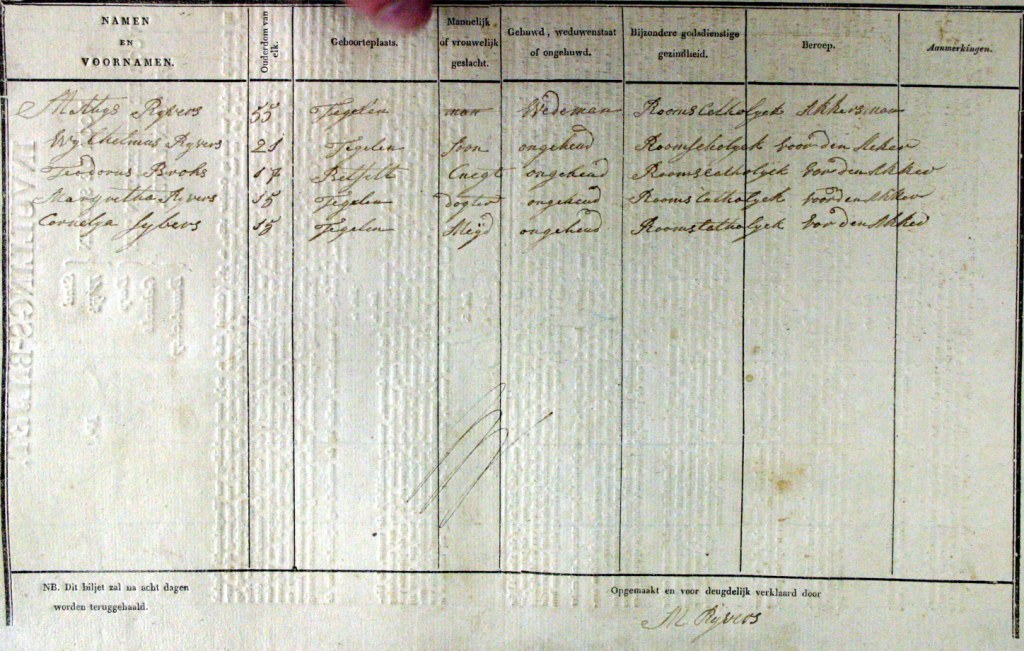 NAMEN EN VOORNAMEN. Ouderdom van elk. Geboorteplaats. Mannelijk of vrouwelijk geslacht. Gehuwd, weduwenstaat of ongehuwd. Bijzondere godsdienstige gezindheid. Beroep. Aanmerkingen.
Mathys Ryvers 55 Tegelen man Wedeman Roomscatholyek Akkersman
Wylhelmus Ryvers 21 Tegelen soon ongeheud Roomscholyek voor den Akker
Teodorus Broks 17 Cnegt ongeheud Roomscatholyek vor den Akker
Margretha Ryvers 15 Tegelen dogter ongeheud Rooms Catholyek voor den Akker
Cornelya Sybers 15 Tegelen Meyd ongeheud Roomscatholyek vor den Akker
NB. Dit biljet zal na acht dagen
worden teruggehaald.
Opgemaakt en voor deugdelijk verklaard door
M Ryvers
INVULLINGS-BILJET.